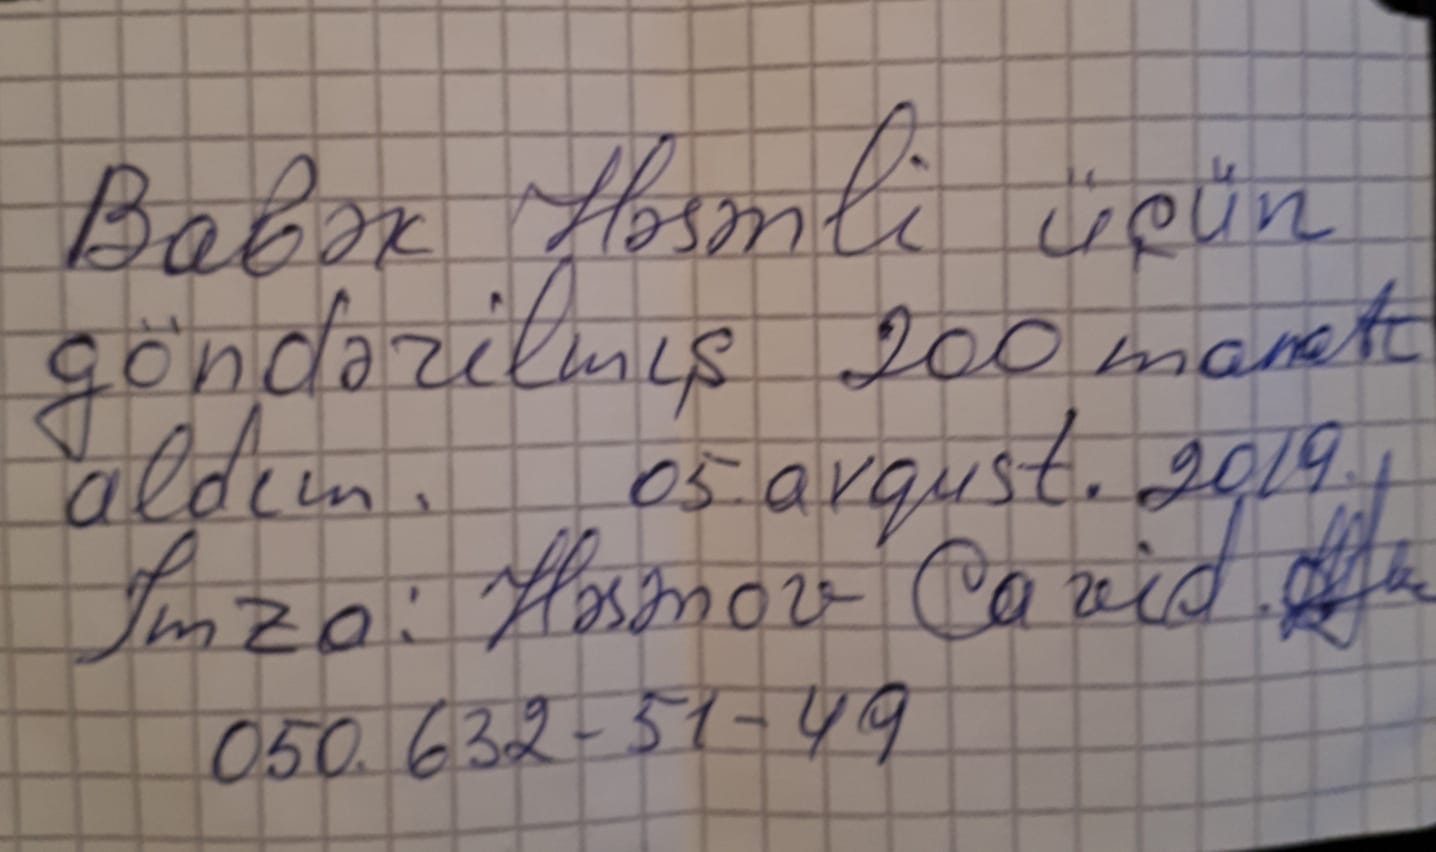 Babək Həsənli üçün
göndərilmış 200 manat
aldım. 05. avqust. 2019.
İmza: Həsənov Cavid.
050. 632-51-49